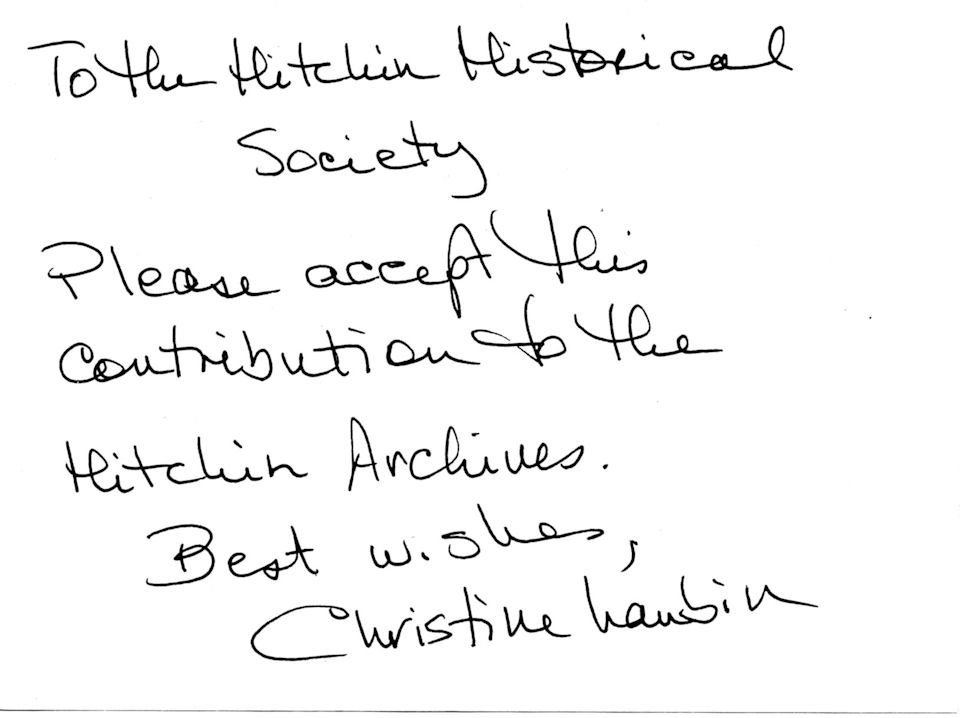 To the Hitchin Historical
Society
Please accept this
contribution to the
Hitchin Archives.
Best wishes,
Christine